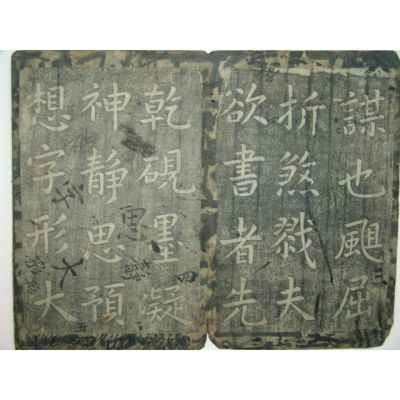 謀也颶屈
折煞戮夫
欲書者先
乾硯墨凝
神靜思預
想字形大